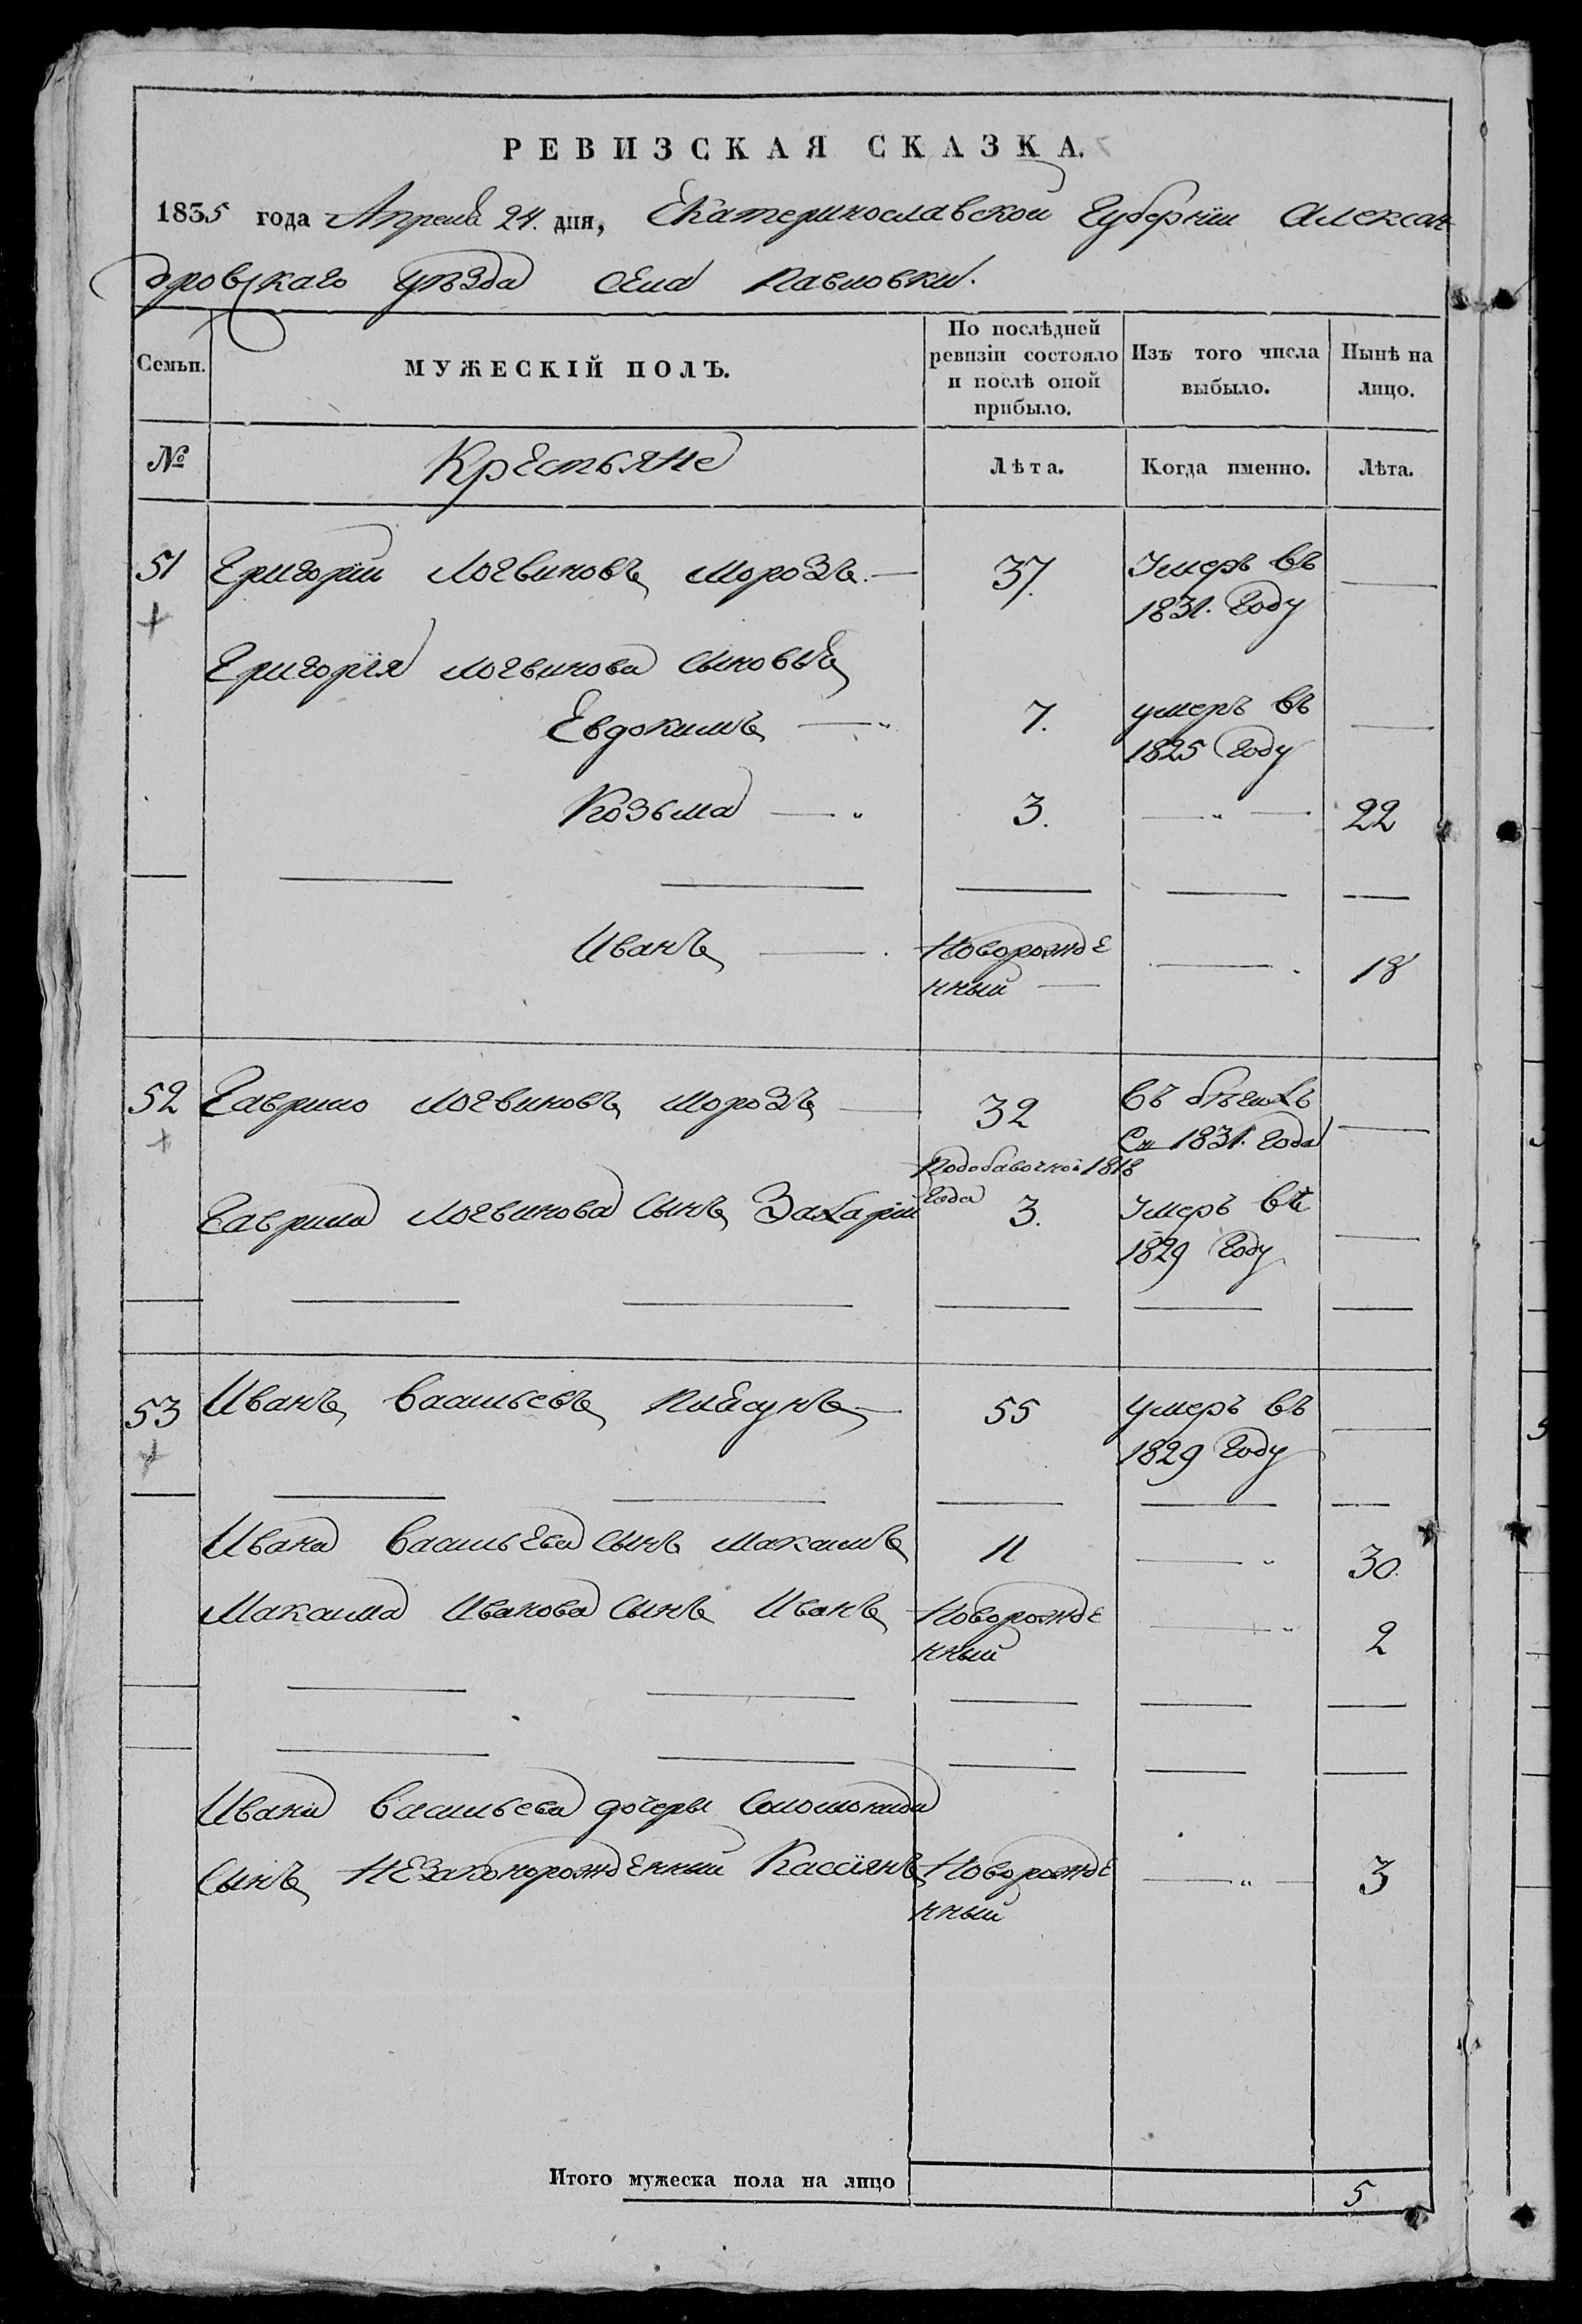 РЕВИЗСКАЯ СКАЗКА.
1835 года Апреля 24. дня, Екатеринославской Губернїи Алексан
дровскаго уѣзда села Павловки.
Семьи. МУЖЕСКІЙ ПОЛЪ. По послѣдней ревизіи состояло и послѣ оной прибыло. Изъ того числа выбыло. Нынѣ на лицо.
№ Крестьяне Лѣта. Когда именно. Лѣта.
51 Григорїй Логвиновъ Морозъ. — 37. Умеръ въ —
1831. Году
Григорїя Логвинова сыновья
Евдокимъ — " 7. умеръ въ —
1825 Году
Козьма — " 3. — " — 22
Иванъ — Новорожде — 18
нный —
52 Гаврило Логвиновъ Морозъ — 32 въ бѣгахъ —
Съ 1831. Года
Подобавочной 1818
Года
Гаврила Логвинова сынъ Захарїй 3. Умеръ въ —
1829 Году
53 Иванъ Васильевъ Плѣсунъ — 55 умеръ въ —
1829 Году
Ивана Васильева сынъ Максимъ 11 — " 30.
Максима Иванова сынъ Иванъ Новорожде — " 2
нный
Ивана Васильева дочеры Соломониды
сынъ незаконорожденный Кассїянъ Новорожде — " — 3
нный
Итого мужеска пола на лицо 5